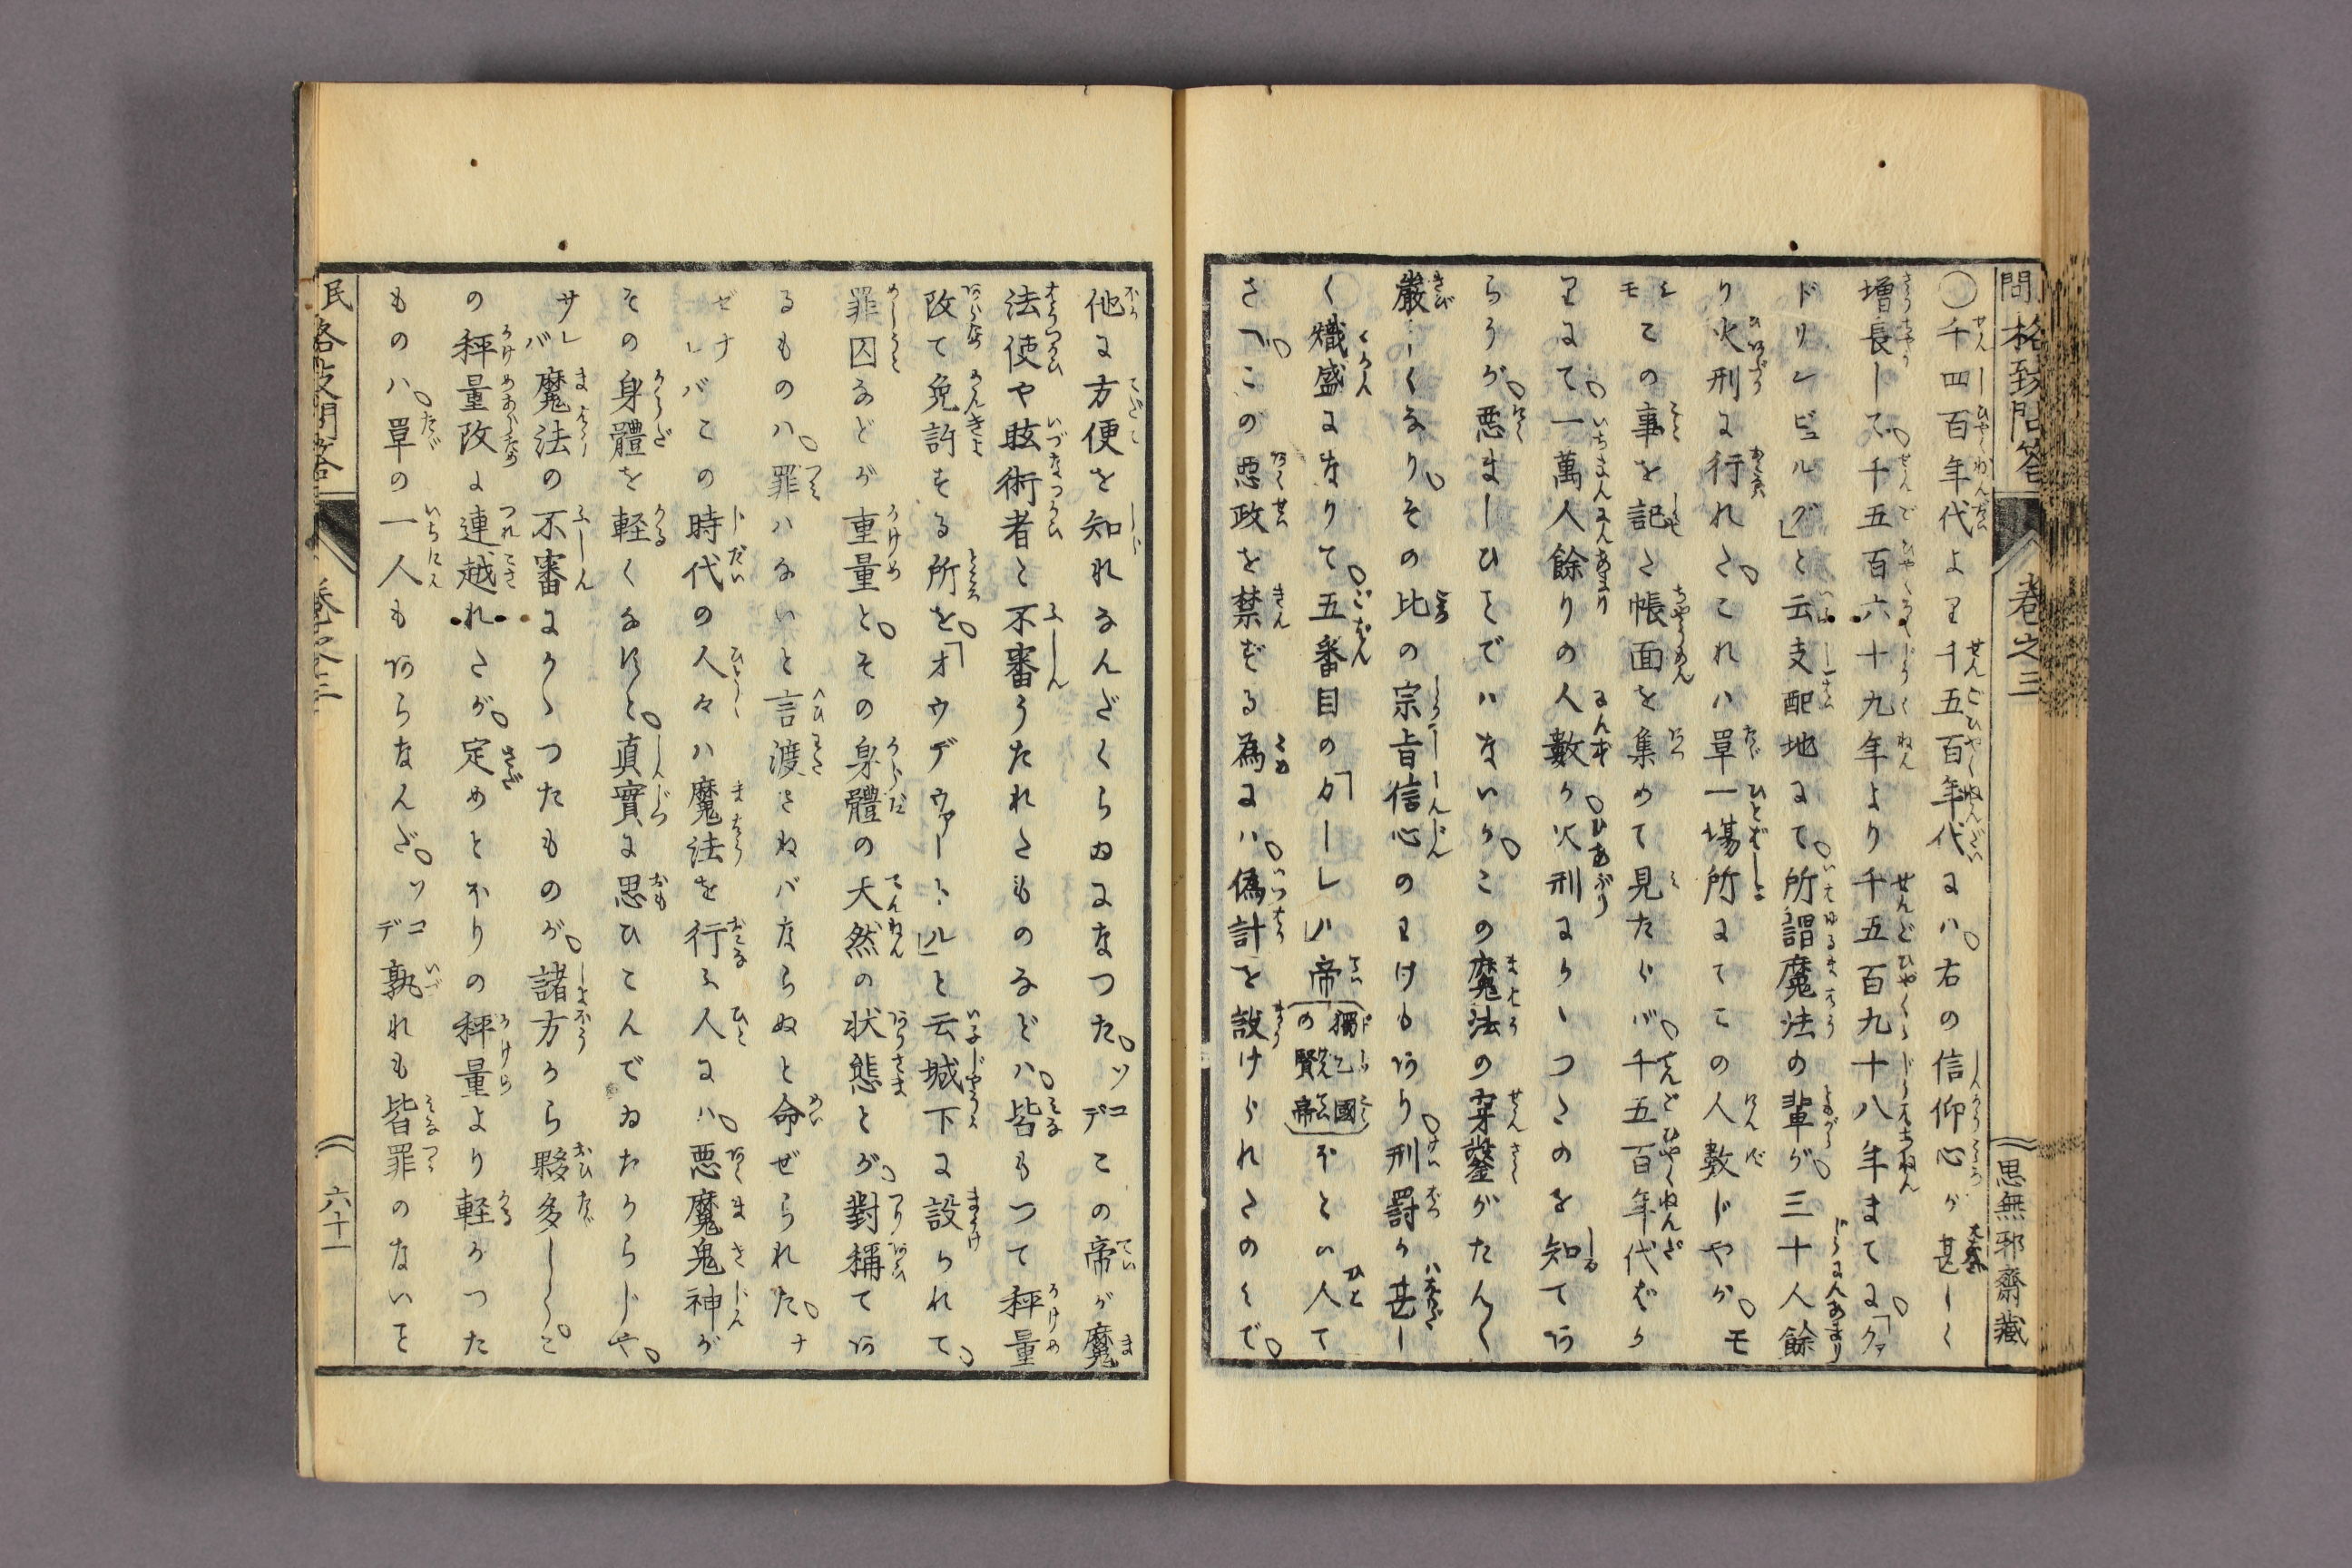 民間格致問答
巻之三
思無邪齋藏
〇千四百年代より千五百年代にハ。右の信仰心が甚しく
増長して。千五百六十九年より千五百九十八年までに。「クァ
ドリレビュルグ」と云支配地にて。所謂魔法の輩が。三十人餘
り火刑に行れた。これハ單一塲所にてこの人数じやが。モ
シモこの事を記た帳面を集めて見たらバ。千五百年代ばか
りにて。一萬人餘りの人數が火刑にかゝつたのを知てあ
らうが。悪ましひことでハないか。この魔法の穿鑿がだん〱
嚴しくなり。その比の宗旨信心のわけもあり。刑罰が甚し
く熾盛になりて。五番目の「カーレル」帝(獨乙國の賢帝)ほどの人で
さへ。この悪政を禁ずる為にハ。偽計を設けられたのくで。
他に方便を知れるんだくらゐになつた。ソコデこの帝が魔
法使や眩術者と不審うたれたものなどハ。皆もつて秤量
改て免許する所を。「オウデヴァートル」と云城下に設られて。
罪囚などが重量と。その身體の天然の状態とが。對稱てあ
るものハ。罪ハないと言渡さねバならぬと命ぜられた。ナ
ゼナレバこの時代の人々ハ魔法を行ふ人にハ。悪魔鬼神が
その身體を軽くなすと。真實に思ひこんでゐたからじや。
サレバ魔法の不審にかゝつたものが。諸方から夥多しくこ
の秤量改に連越れたが。定めとほりの秤量より軽かつた
ものハ。單の一人もあらなんだ。ソコデ孰れも皆罪のないこと
民間格致問答
巻之三
六十一